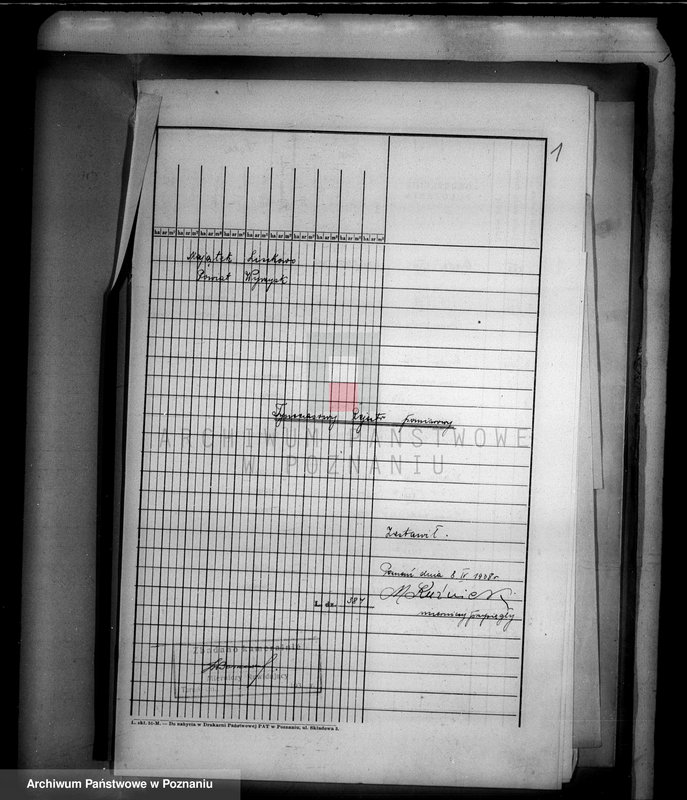 1
ha ar m² ha ar m² ha ar m² ha ar m² ha ar m² ha ar m² ha ar m² ha ar m² ha ar m² ha ar m²
Majątek Liszkowo
Powiat Wyrzysk
Tymczasowy Rejestr pomiarowy
ARCHIWUM PAŃSTWOWE
W POZNANIU
Zestawił.
Poznań dnia 8 IV 1938 r.
M Kuźnicki
mierniczy przysięgły
L. dz. 387
Zbadano kameralnie
Mierniczy
L. skł. 50-M. — Do nabycia w Drukarni Państwowej PAT w Poznaniu, ul. Składowa 3.
Archiwum Państwowe w Poznaniu